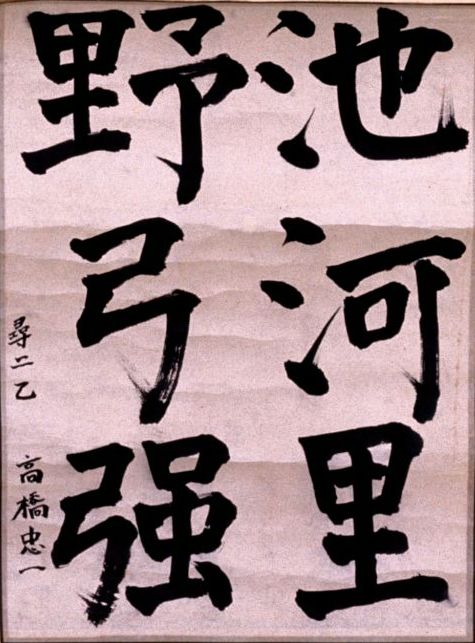 池河里
野弓强
尋二乙 高橋忠一